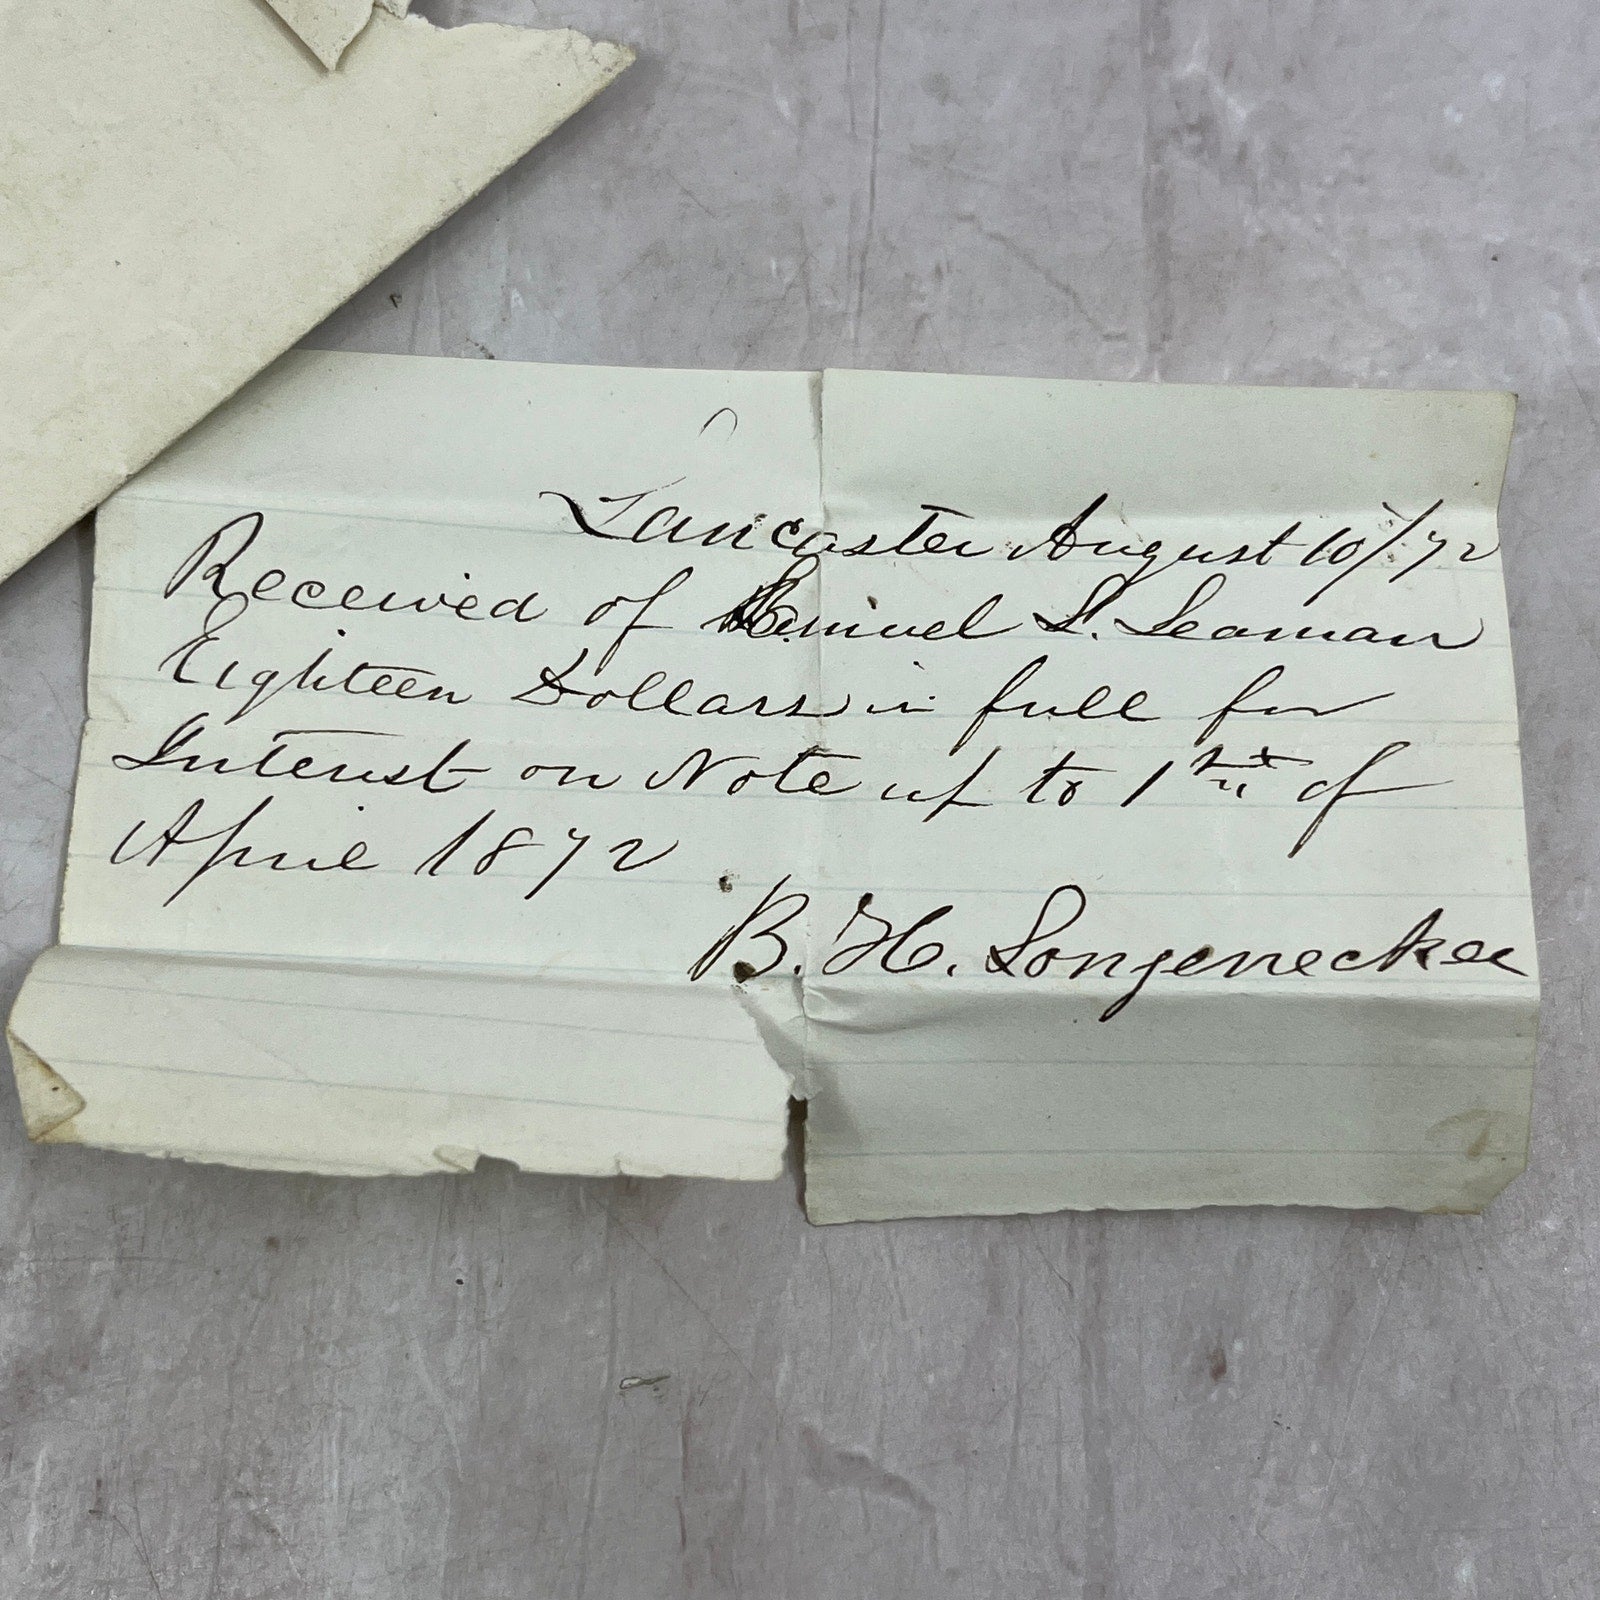 Lancaster August 10/72
Received of Samuel L. Leaman
Eighteen Dollars in full for
Interest on Note up to 1st of
April 1872
B. H. Longenecker